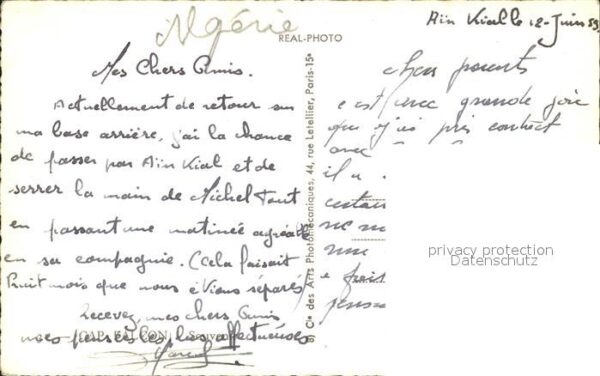 Algérie
REAL-PHOTO
Aïn Kial le 12-Juin 59
Mes Chers Amis.
Actuellement de retour sur
ma base arrière, j'ai la chance
de passer par Aïn Kial et de
serrer la main de Michel Tout
en passant une matinée agréable
en sa compagnie. (Cela faisait
huit mois que nous étions séparés)
Recevez, mes chers Amis
mes pensées les plus affectueuses
CAP FALCON
Cie des Arts Photomécaniques, 44, rue Letellier, Paris-15e
chers parents
c'est avec grande joie
que j'ai pris contact
avec
il a
certain
ne m
une
fois
privacy protection
Datenschutz